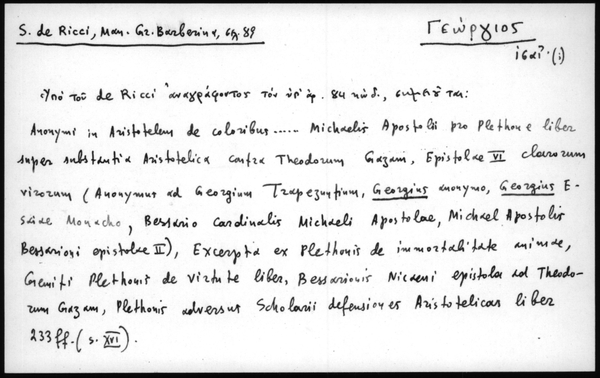 S. de Ricci, Man. Gr. Barberina, σελ. 89
Γεώργιος
ἰδαί· (;)
Ὑπὸ τοῦ de Ricci ἀναγράφοντος τὸν ὑπ' ἀρ. 84 κώδ., σημειοῦται:
Anonymi in Aristotelem de coloribus ..... Michaelis Apostolii pro Plethone liber
super substantia Aristotelica contra Theodorum Gazam, Epistolae VI clarorum
virorum (Anonymus ad Georgium Trapezuntium, Georgius anonymo, Georgius E-
saiae Monacho, Bessario Cardinalis Michaeli Apostolae, Michael Apostolis
Bessarioni epistolae II), Excerpta ex Plethonis de immortalitate animae,
Gemisti Plethonis de virtute liber, Bessarionis Nicaeni epistola ad Theodo-
rum Gazam, Plethonis adversus Scholarii defensiones Aristotelicas liber
233 ff. (s. XVI).